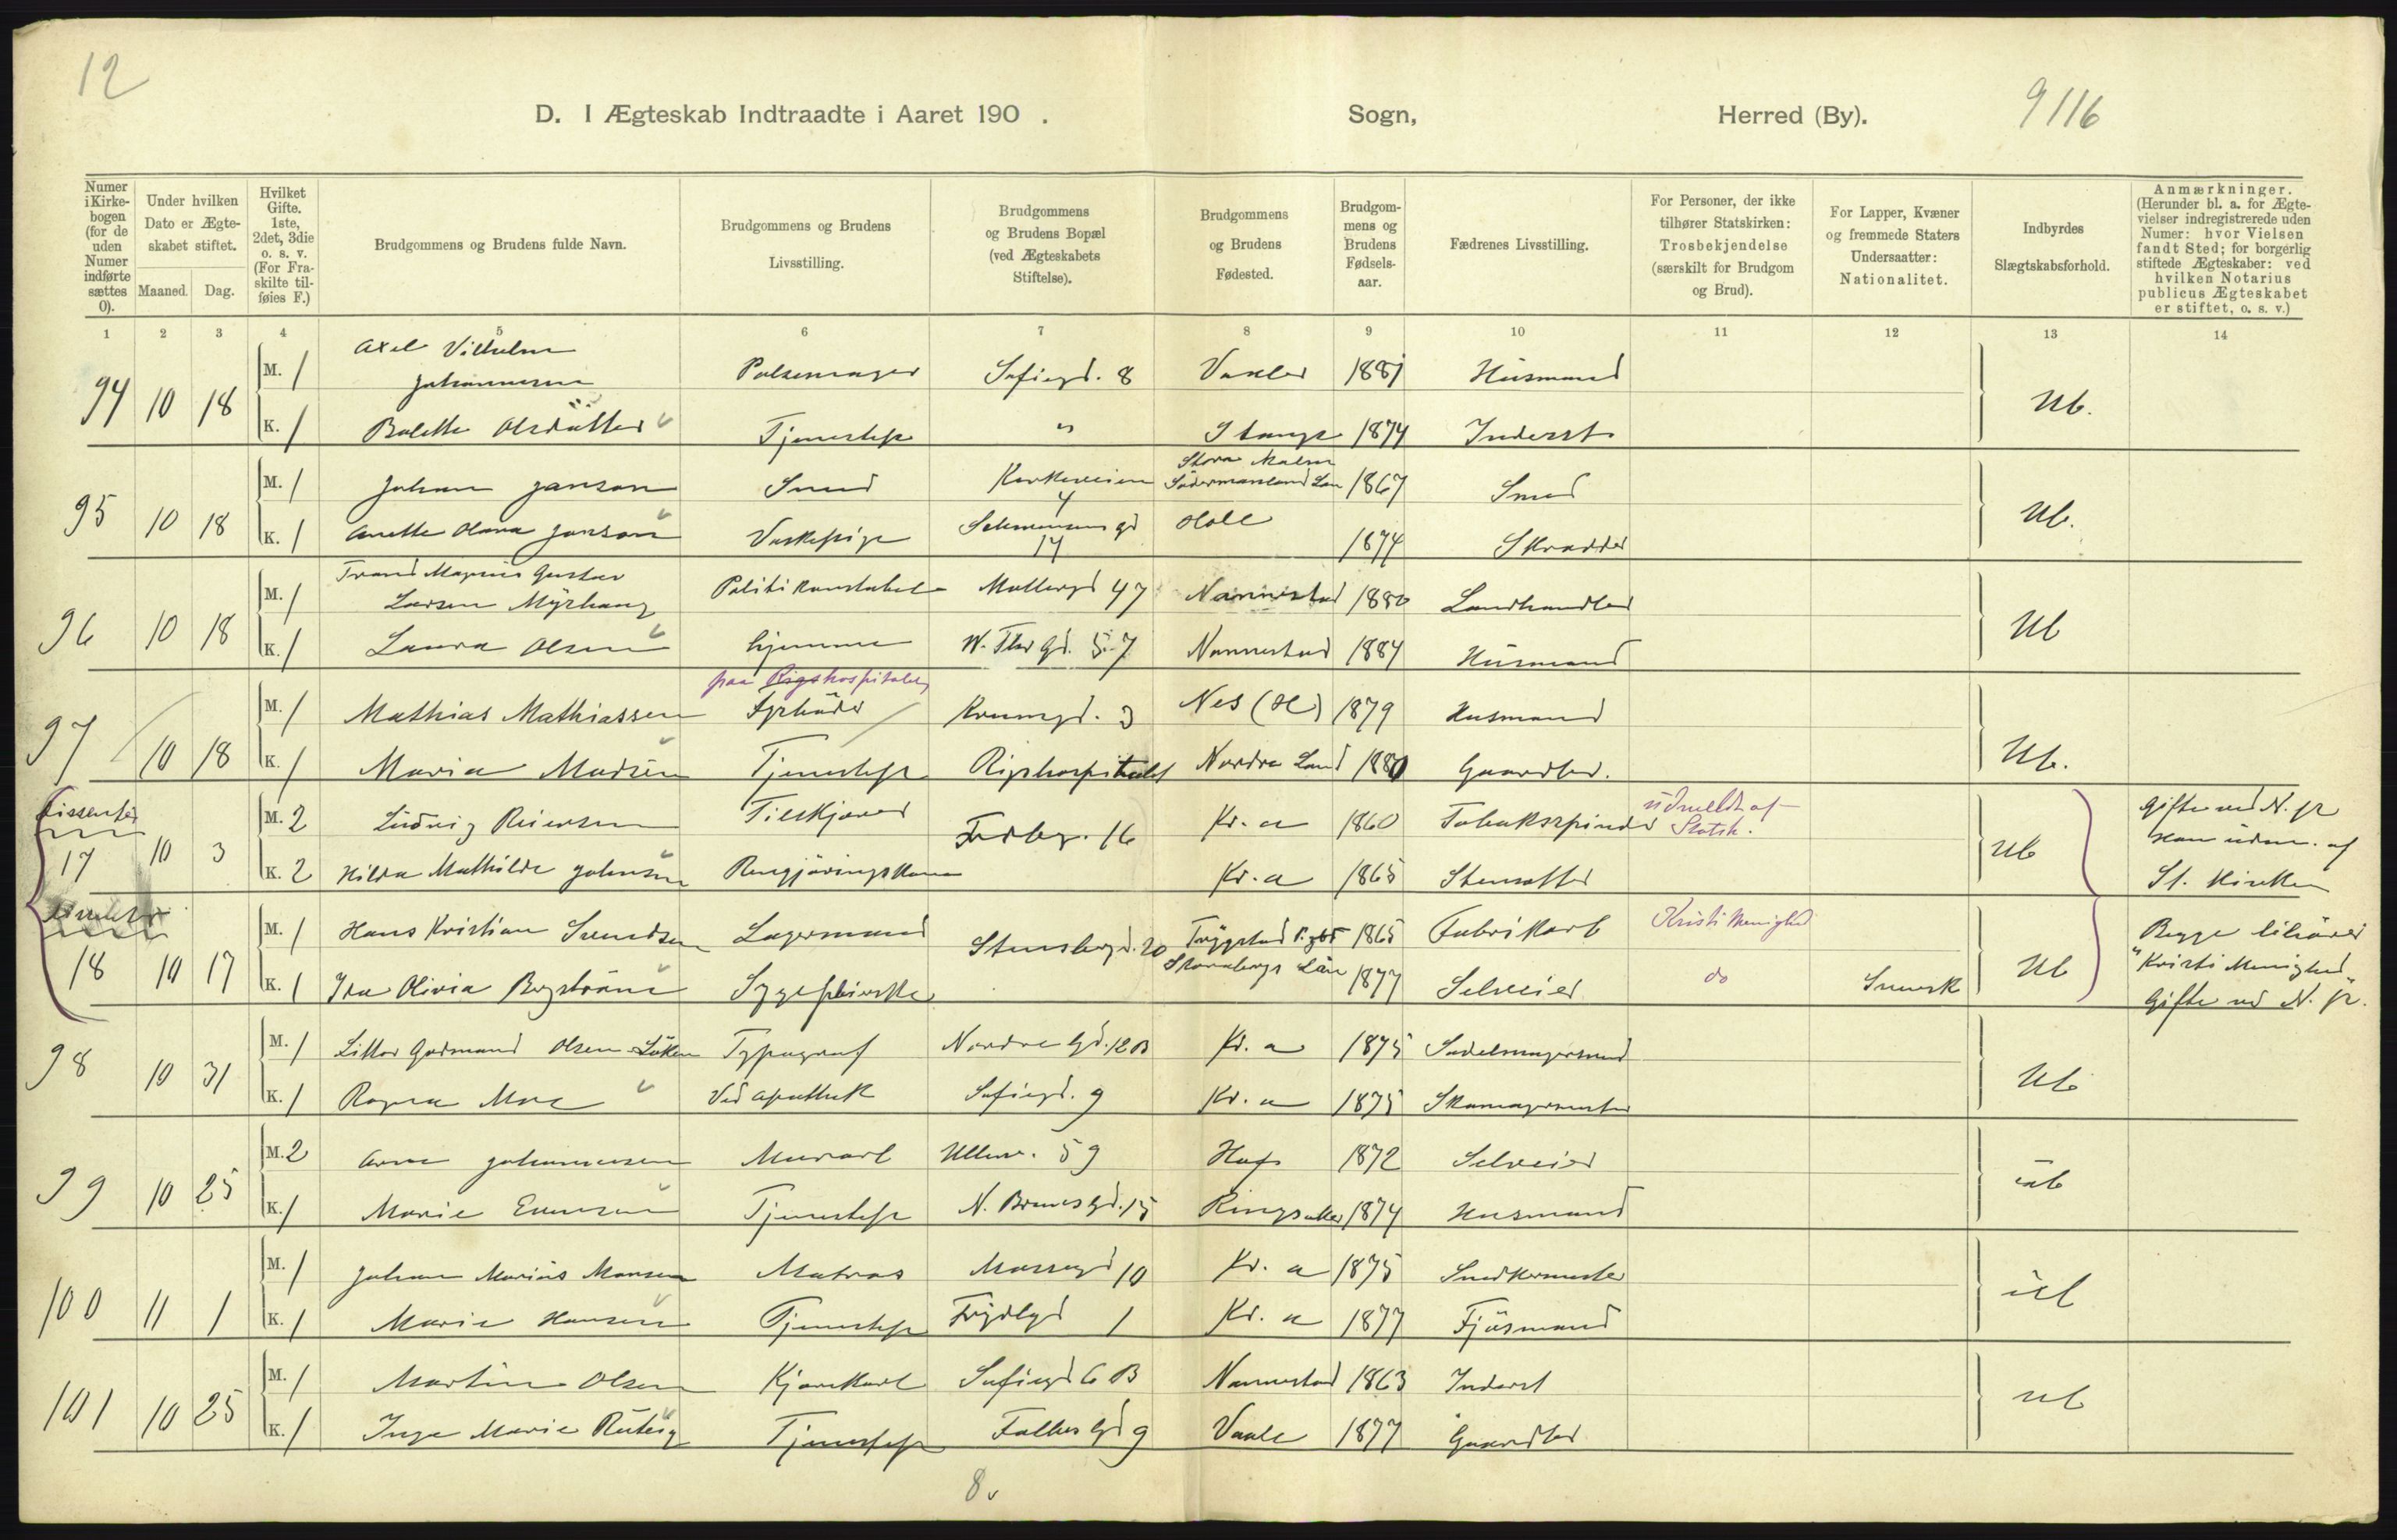 12
D. I Ægteskab Indtraadte i Aaret 190 . Sogn, Herred (By). 9116
Numer i Kirkebogen (for de uden Numer indførte sættes 0).
Under hvilken Dato er Ægteskabet stiftet.
Maaned. Dag.
Hvilket Gifte. 1ste, 2det, 3die o. s. v. (For Fraskilte tilføies F.)
Brudgommens og Brudens fulde Navn.
Brudgommens og Brudens Livsstilling.
Brudgommens og Brudens Bopæl (ved Ægteskabets Stiftelse).
Brudgommens og Brudens Fødested.
Brudgommens og Brudens Fødselsaar.
Fædrenes Livsstilling.
For Personer, der ikke tilhører Statskirken: Trosbekjendelse (særskilt for Brudgom og Brud).
For Lapper, Kvæner og fremmede Staters Undersaatter: Nationalitet.
Indbyrdes Slægtskabsforhold.
Anmærkninger. (Herunder bl. a. for Ægtevielser indregistrerede uden Numer: hvor Vielsen fandt Sted; for borgerlig stiftede Ægteskaber: ved hvilken Notarius publicus Ægteskabet er stiftet, o. s. v.)
1 2 3 4 5 6 7 8 9 10 11 12 13 14
Axel Vilhelm
94 10 18 M. 1 Johannesen Pølsemager Sofiegd. 8 Vaaler 1881 Husmand Ub.
K. 1 Bolette Olsdatter Tjenestepe " Stange 1874 Inderst
Stora Malm
95 10 18 M. 1 Johan Janson Smed Kirkeveien 4 Södermanland Län 1867 Smed Ub.
K. 1 Anette Olava Janson Vaskepige 14 Hole 1874 Skrædder
96 10 18 M. 1 Larsen Myrhaug Politikonstabel Møllergd 47 Nannestad 1880 Landhandler Ub
K. 1 Laura Olsen hjemme 57 Nannestad 1884 Husmand
paa Rigshospitalet
97 10 18 M. 1 Mathias Mathiassen Fyrbøder 3 Nes (H) 1879 Husmand Ub.
K. 1 Maria Madsen Tjenestepe Rigshospitalet Nordre Land 1880 Gaardbr.
Dissenter
17 10 3 M. 2 Ludvig Reiersen Fredbg. 16 Kr. a 1860 Tobaksspinder udmeldt af Statsk. Ub Gifte ved N. p
K. 2 Hilda Mathilde Johnsen Rengjøringskone Kr. a 1865 Han udm. af
St. Kirken
18 10 17 M. 1 Hans Kristian Svendsen Lagermand Stensbergd. 20 Trygstad 1865 Fabrikarb Kristi Menighed Ub Begge tilhører
K. 1 Ida Olivia Bergström Sygepleierske Skaraborgs Län 1877 Selveier do Svensk "Kristi Menighed"
Gifte ved N. p.
98 10 31 M. 1 Olsen Løken Typograf Nordre Gd. 12B Kr. a 1875 Sadelmagersvend Ub
K. 1 Ragna Moe Ved apothek Sofiegd. 9 Kr. a 1875 Skomagermester
99 10 25 M. 2 Arne Johannesen Murarb Ullev. 59 Hof 1872 Selveier ub
K. 1 Marie Evensen Tjenestepe 15 Ringsaker 1874 Husmand
100 11 1 M. 1 Johan Marius Monsen Matros Mossegd 10 Kr. a 1875 Snedkermester ub
K. 1 Marie Hansen Tjenestepe 1 Kr. a 1877 Fjøsmand
101 10 25 M. 1 Martin Olsen Kjørekarl Sofiegd 6 B Nannestad 1863 Inderst ub
K. 1 Inga Marie Tjenestepe Falbes Gd 9 Vaale 1877 Gaardbr
8.